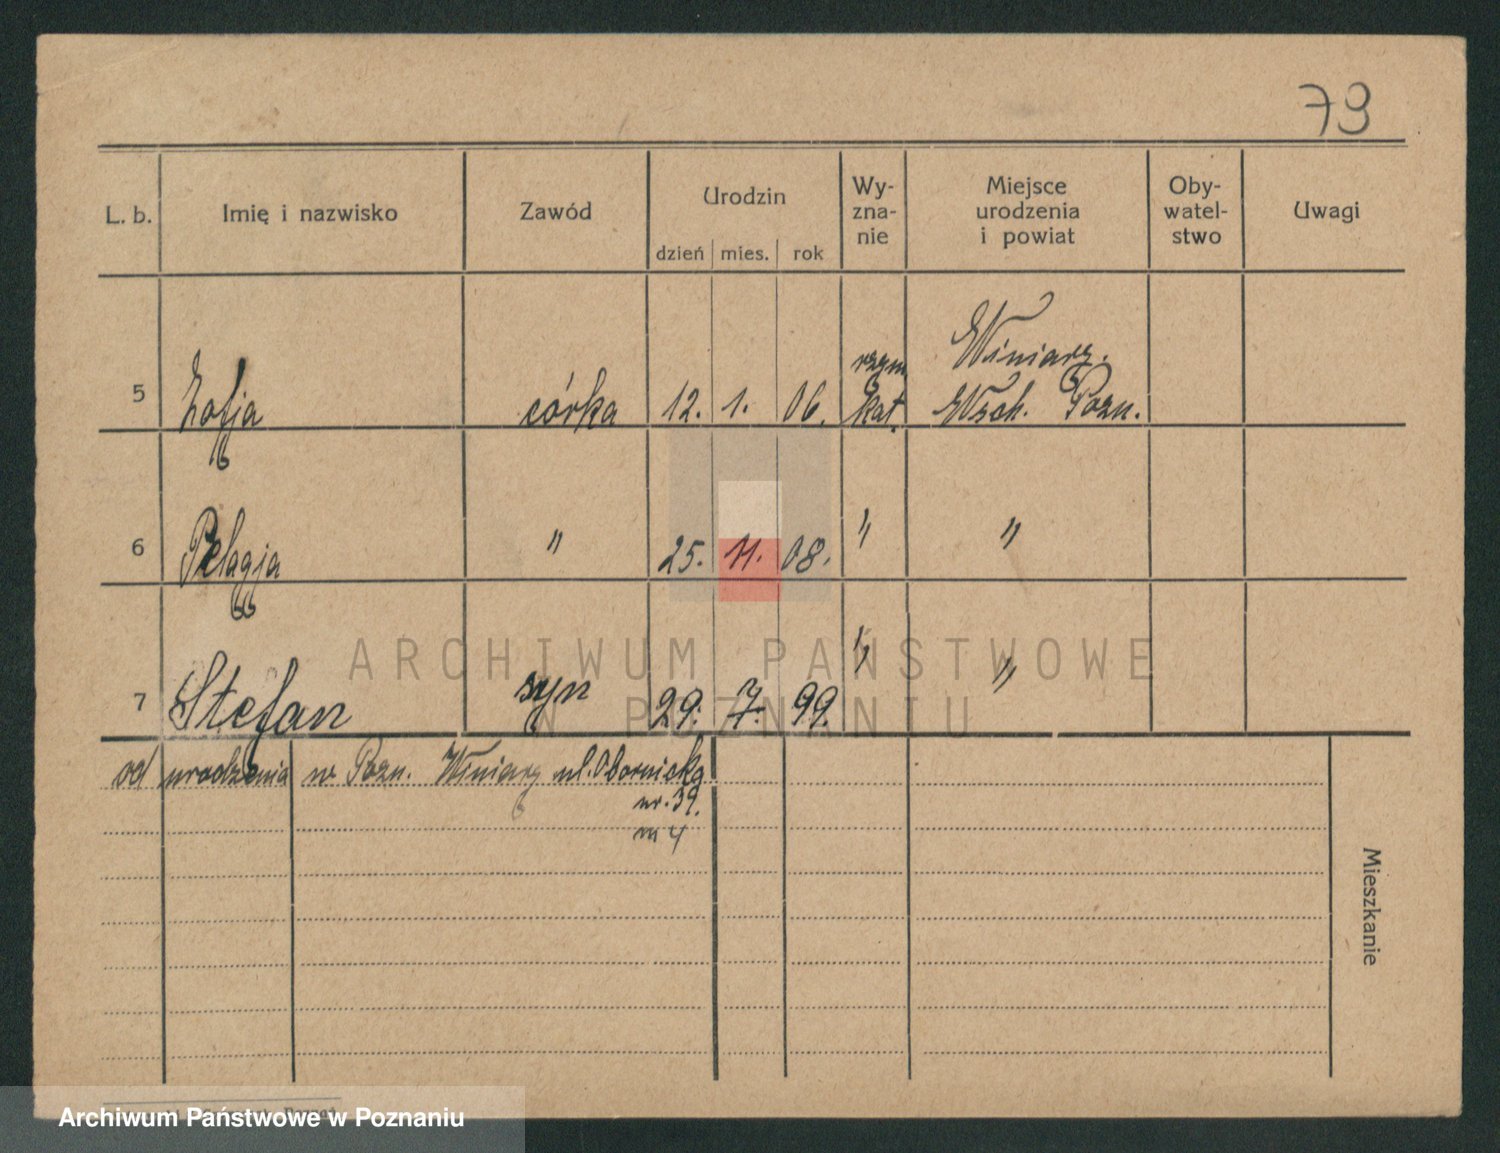 79
L. b. Imię i nazwisko Zawód Urodzin Wy-zna-nie Miejsce urodzenia i powiat Oby-watel-stwo Uwagi
dzień mies. rok
5 Zofja córka 12. 1. 06. rzym kat. Winiary. Wsch. Pozn.
6 Pelagja " 25. 11. 08. " "
7 Stefan syn 29. 7. 99. " "
od urodzenia w Pozn. Winiary ul. Obornicka
nr. 39.
m 4
Mieszkanie
ARCHIWUM PAŃSTWOWE
W POZNANIU
Archiwum Państwowe w Poznaniu